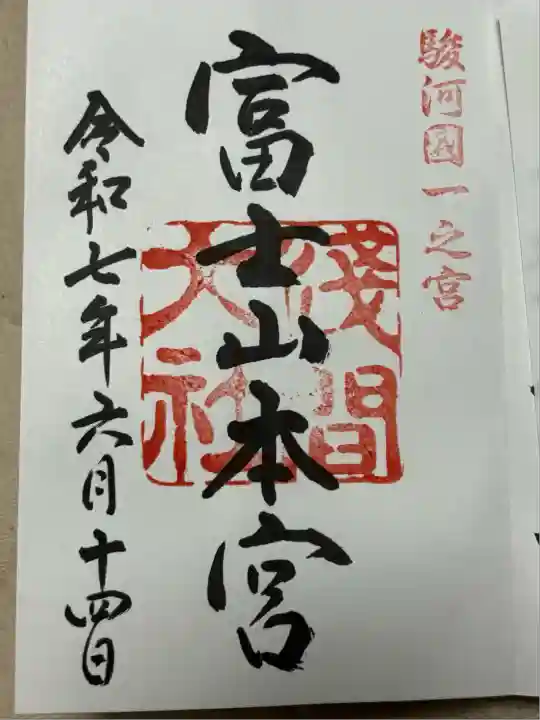 駿河國一之宮
富士山本宮
淺間
大社
令和七年六月十四日